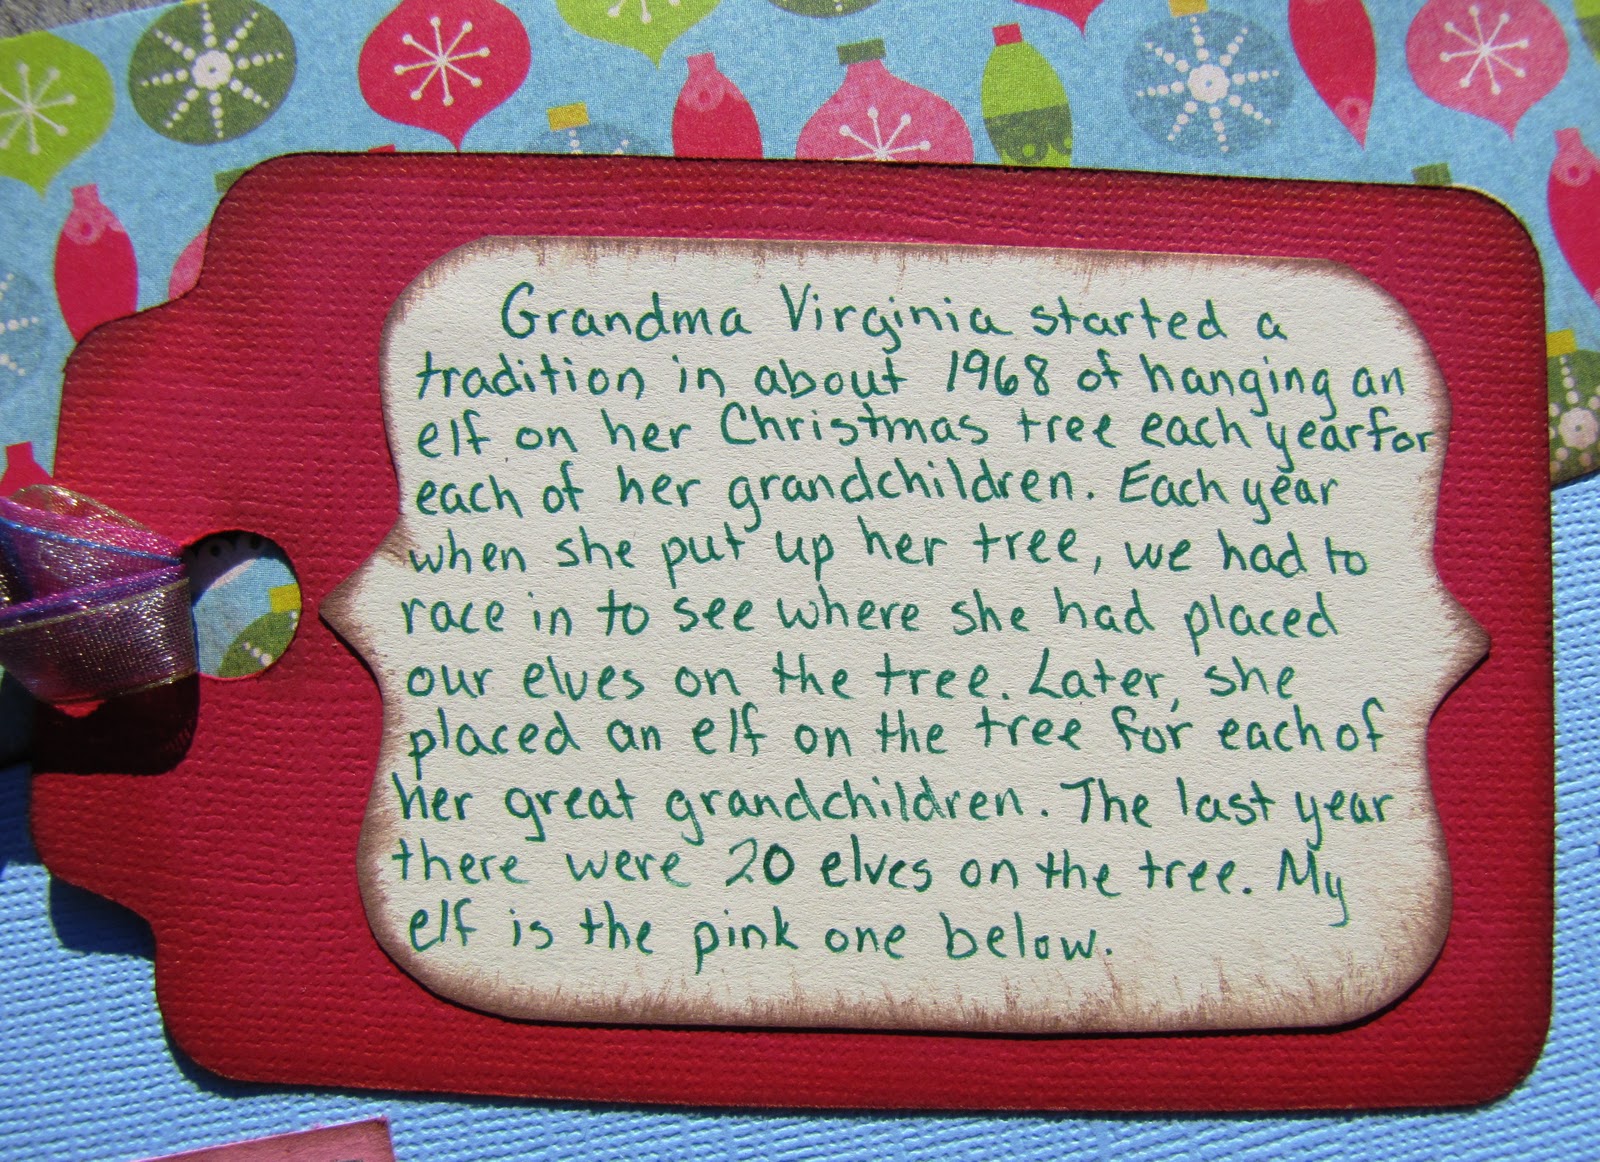 Grandma Virginia started a
tradition in about 1968 of hanging an
elf on her Christmas tree each year for
each of her grandchildren. Each year
when she put up her tree, we had to
race in to see where she had placed
our elves on the tree. Later, she
placed an elf on the tree for each of
her great grandchildren. The last year
there were 20 elves on the tree. My
elf is the pink one below.